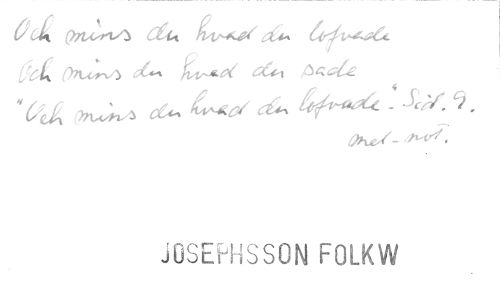 Och mins du hvad du lofvade
Och mins du hvad du sade
"Och mins du hvad du lofvade". Sid. 9.
mel-not.
JOSEPHSSON FOLKW